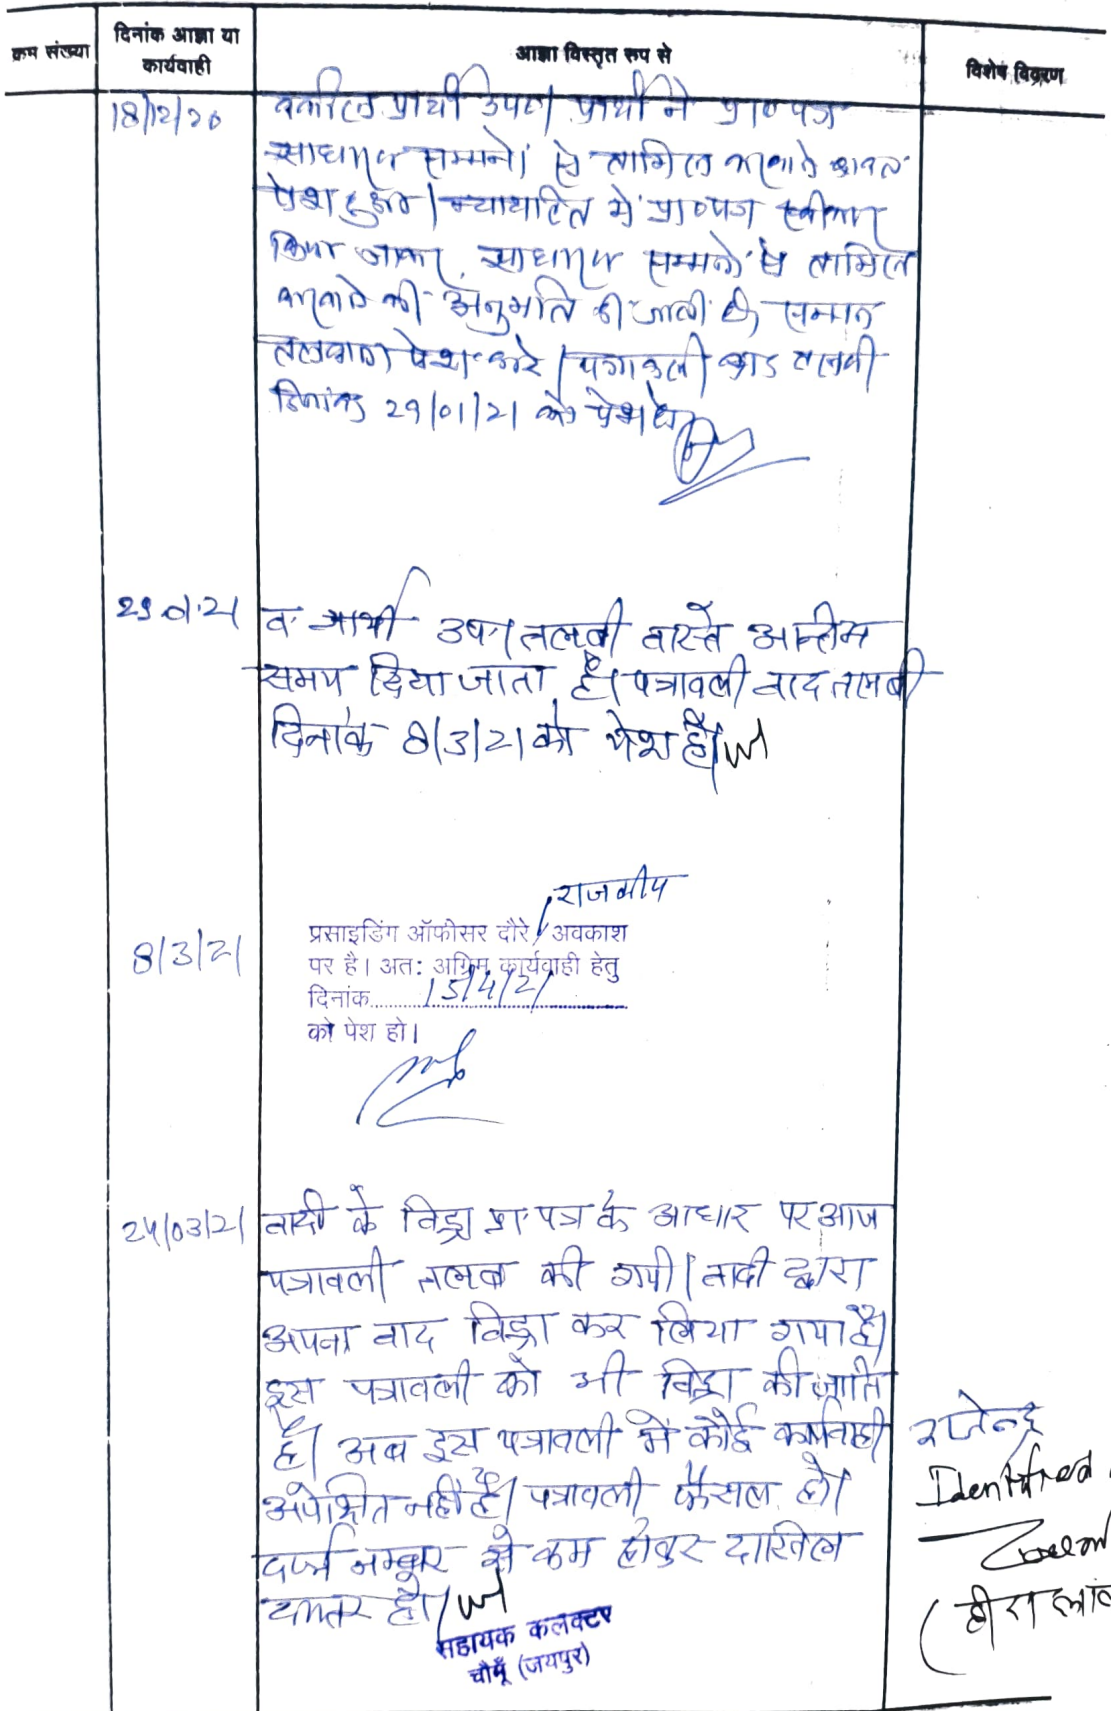 क्रम संख्या
दिनांक आज्ञा या
कार्यवाही
आज्ञा विस्तृत रूप से
विशेष विवरण
18/12/20
वकील प्रार्थी उप०। प्रार्थी ने प्रा०पत्र
साधारण सम्मनों से तामिल करवाने बाबत
पेश हुआ। न्यायहित में प्रा०पत्र स्वीकार
किया जाकर साधारण सम्मनों से तामिल
करवाने की अनुमति दी जाती है, सम्मन
तलवाना पेश करे। पत्रावली बाद तलबी
दिनांक 29/01/21 को पेश हो
29.01.21
व. प्रार्थी उप.। तलबी वास्ते अन्तिम
समय दिया जाता है। पत्रावली बाद तलबी
दिनांक 8/3/21 को पेश हो।
8/3/21
राजकीय
प्रसाइडिंग ऑफीसर दौरे / अवकाश
पर है। अतः अग्रिम कार्यवाही हेतु
दिनांक 15/4/21
को पेश हो।
24/03/21
वादी के विड्रा प्रा. पत्र के आधार पर आज
पत्रावली तलब की गयी। वादी द्वारा
अपना वाद विड्रा कर लिया गया है।
इस पत्रावली को भी विड्रा की जाति
है। अब इस पत्रावली में कोई कार्यवाही
अपेक्षित नहीं है। पत्रावली फैसल हो।
दर्ज नम्बर से कम होकर दाखिल
दफ्तर हो।
सहायक कलक्टर
चौमूँ (जयपुर)
राजेन्द्र
Identified
(हीरा लाल